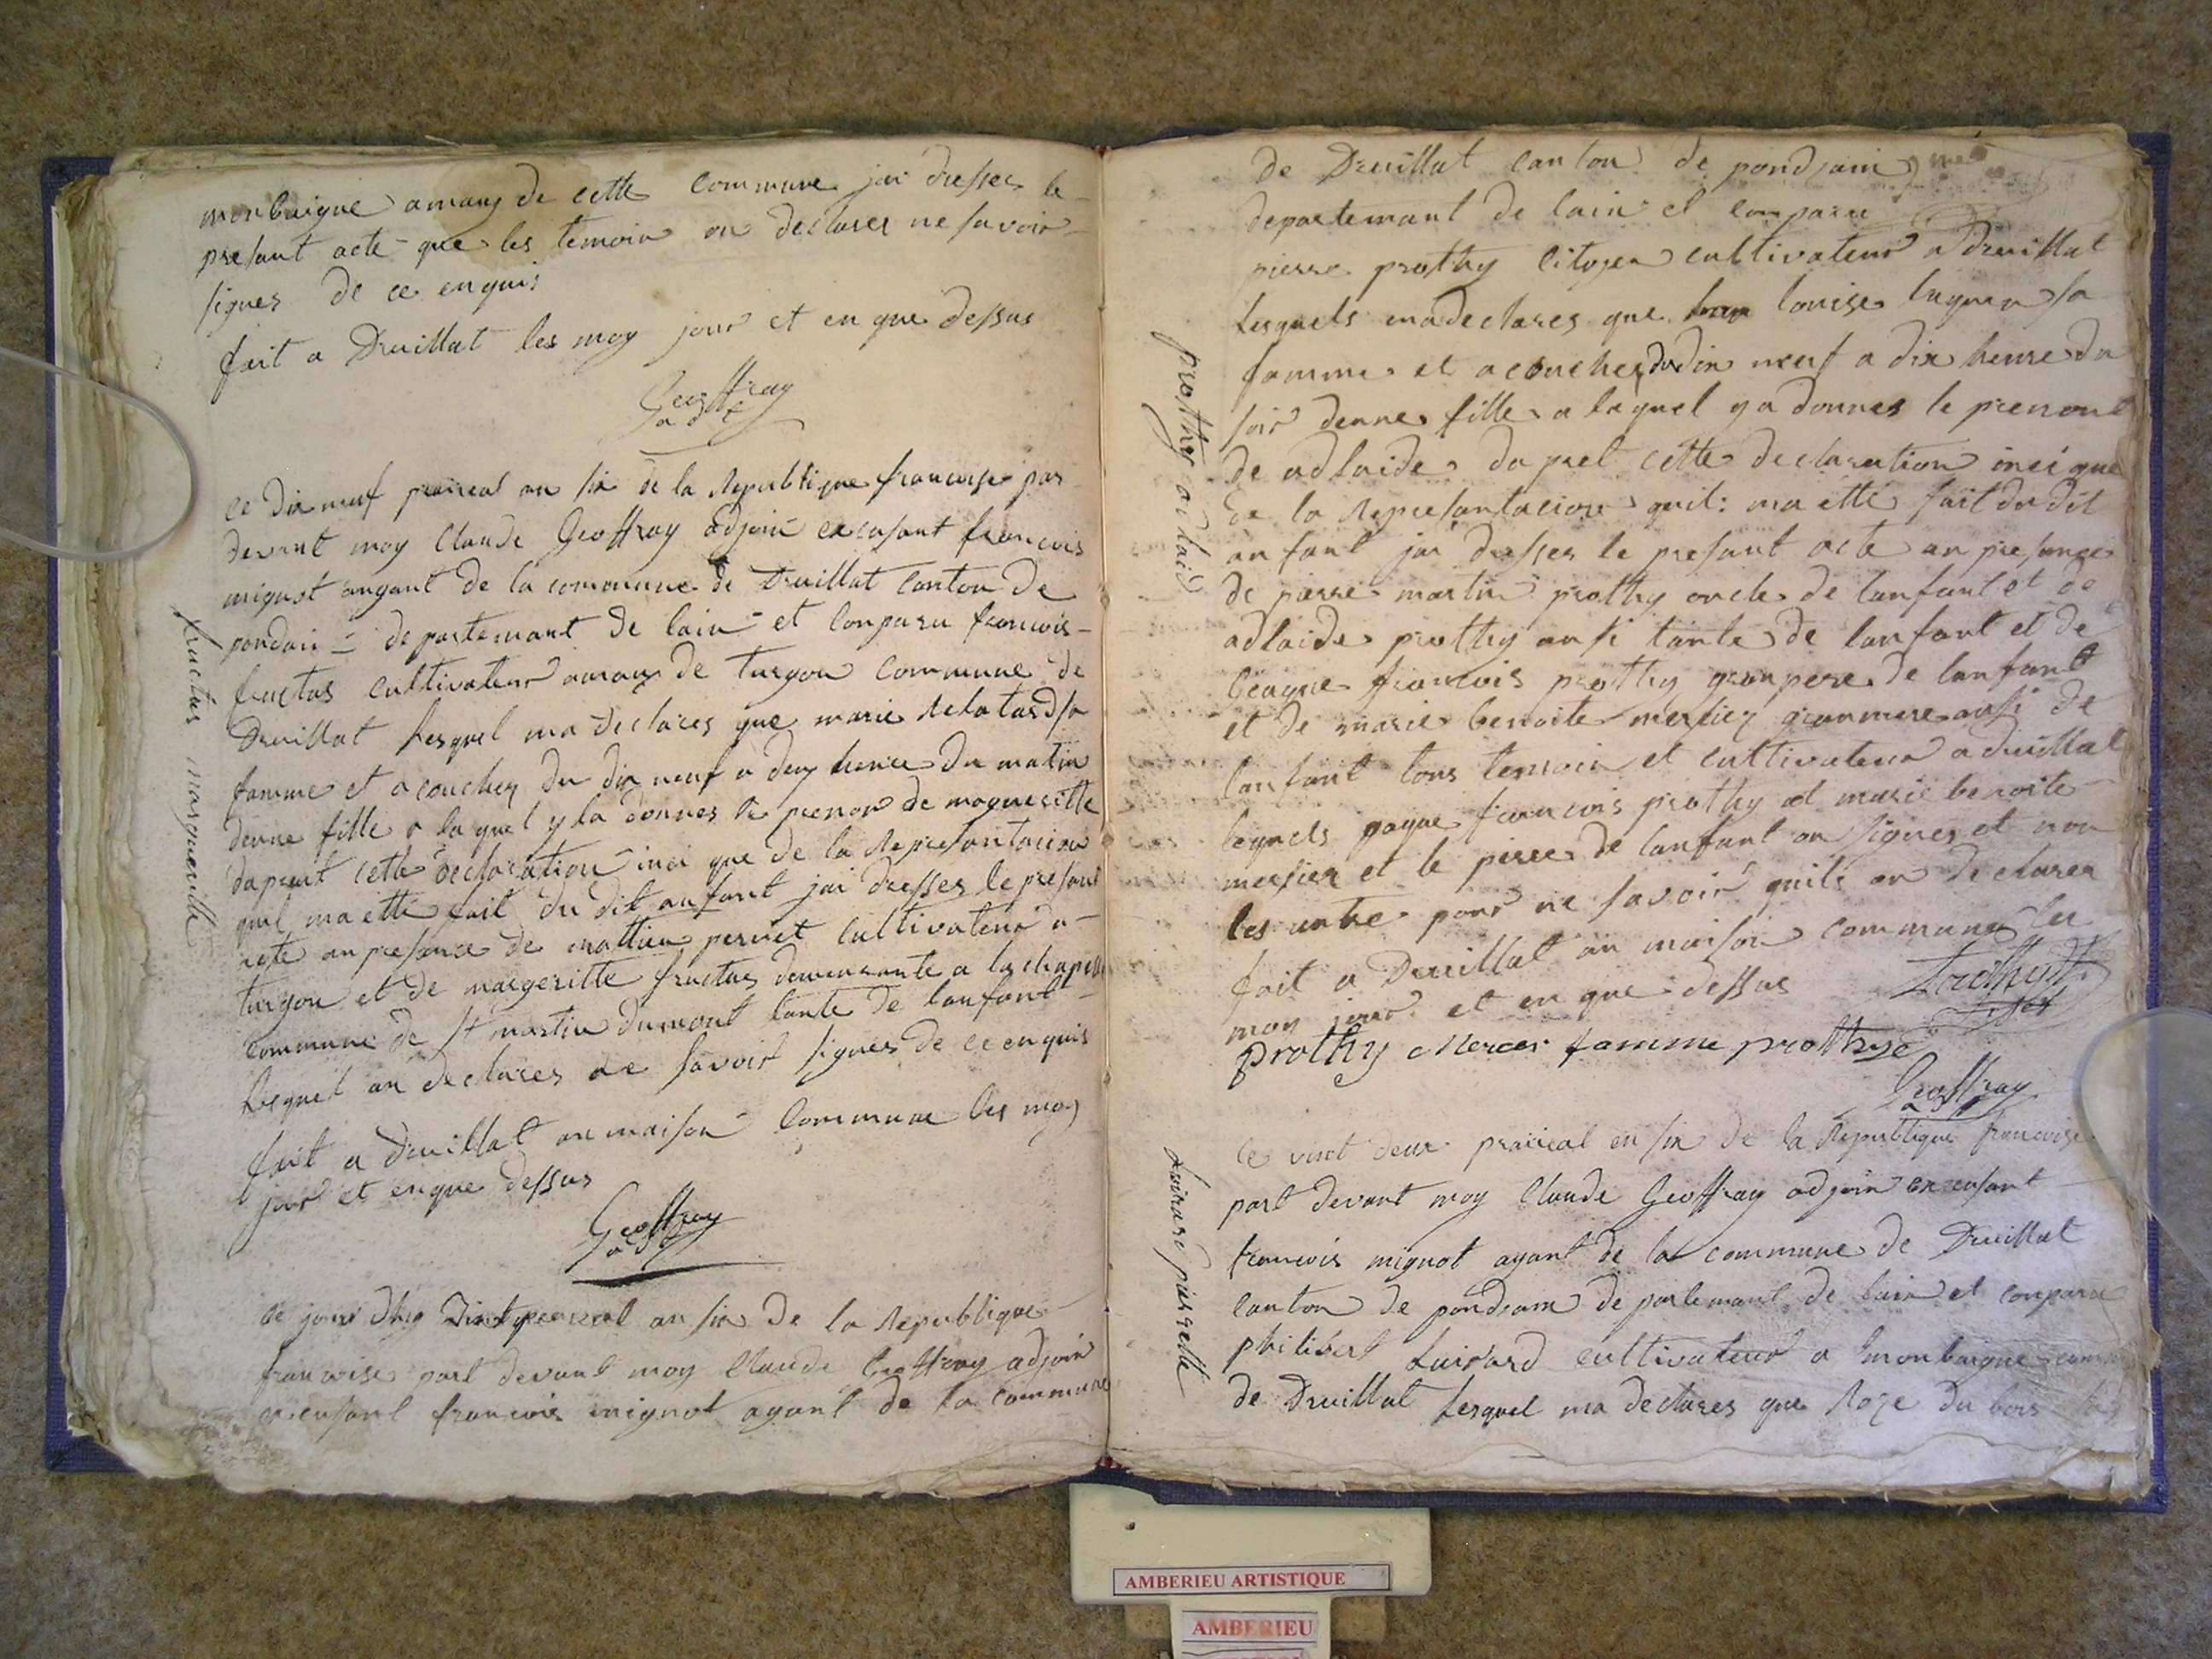 monbaigne amaug de cette commune jai dresser le
presant acte que les temoin on declarer ne savoir
signer de ce enquis
fait a Druillat les moy jour et en que dessus
Geoffray
adj
fructus margueritte
ce dix neuf praireal an six de la Republique francoise par
devant moy Claude Geoffray adjoin excusant francois
mignot angant de la commune de Druillat canton de
pondain departemant de lain et conparu francois
fructus cultivateur amaug de turgon commune de
Druillat lesquel ma declares que marie Relatard sa
famme et acouchez du dix neuf a deux heure du matin
denne fille a laquel y la donnes le prenon de margueritte
daprest cette declaration insi que de la Represantacion
quil ma ette fait du dit anfant jai dresser le presant
acte anpresance de mattieu pernet cultivateur a
turgon et de margeritte fructus demeurante a la chapelle
commune de st martin dumont tante de lanfant
lequel on declares ne savoir signer de ce enquis
fait a druillat an maison commune les moy
jour et enque dessus
Geoffray
adj
ce jour dhuy vint prairial an six de la Republique
francoise part devant moy Claude Geoffray adjoin
excusant francois mignot agant de la commune
de Druillat canton de pondain
departemant de lain et conparu
pierre prothy citoyen cultivateur a Druillat
lesquels madeclares que louise sa
famme et acouchez du dix neuf a dix heure du
soir denne fille a laquel y a donnes le prenont
de adlaide daprest cette declaration insi que
de la Represantacion quil ma ette fait du dit
anfant jai dresser le presant acte an presance
de pierre martin prothy oncle de lanfant et de
adlaide prothy ausi tante de lanfant et de
francois prothy granpere de lanfant
et de marie benoite mersier granmere ausi de
lanfant tous temoin et cultivateur a druillat
lequels francois prothy et marie benoite
mersier et le perre de lanfant on signer et non
les autre pour ne savoir quils on declarer
fait a Druillat an maison commune les
moy jour et en que dessus
prothy Mercier famme prothy
Geoffray
adj
prothy adlaid
Luirard pierrette
ce vint deux prairial en six de la Republique francoise
part devant moy Claude Geoffray adjoin excusant
francois mignot agant de la commune de Druillat
canton de pondain departemant de lain et conparu
philibert Luirard cultivateur a monbaigne
de Druillat lesquel ma declares que Roze du bois
AMBERIEU ARTISTIQUE
AMBERIEU